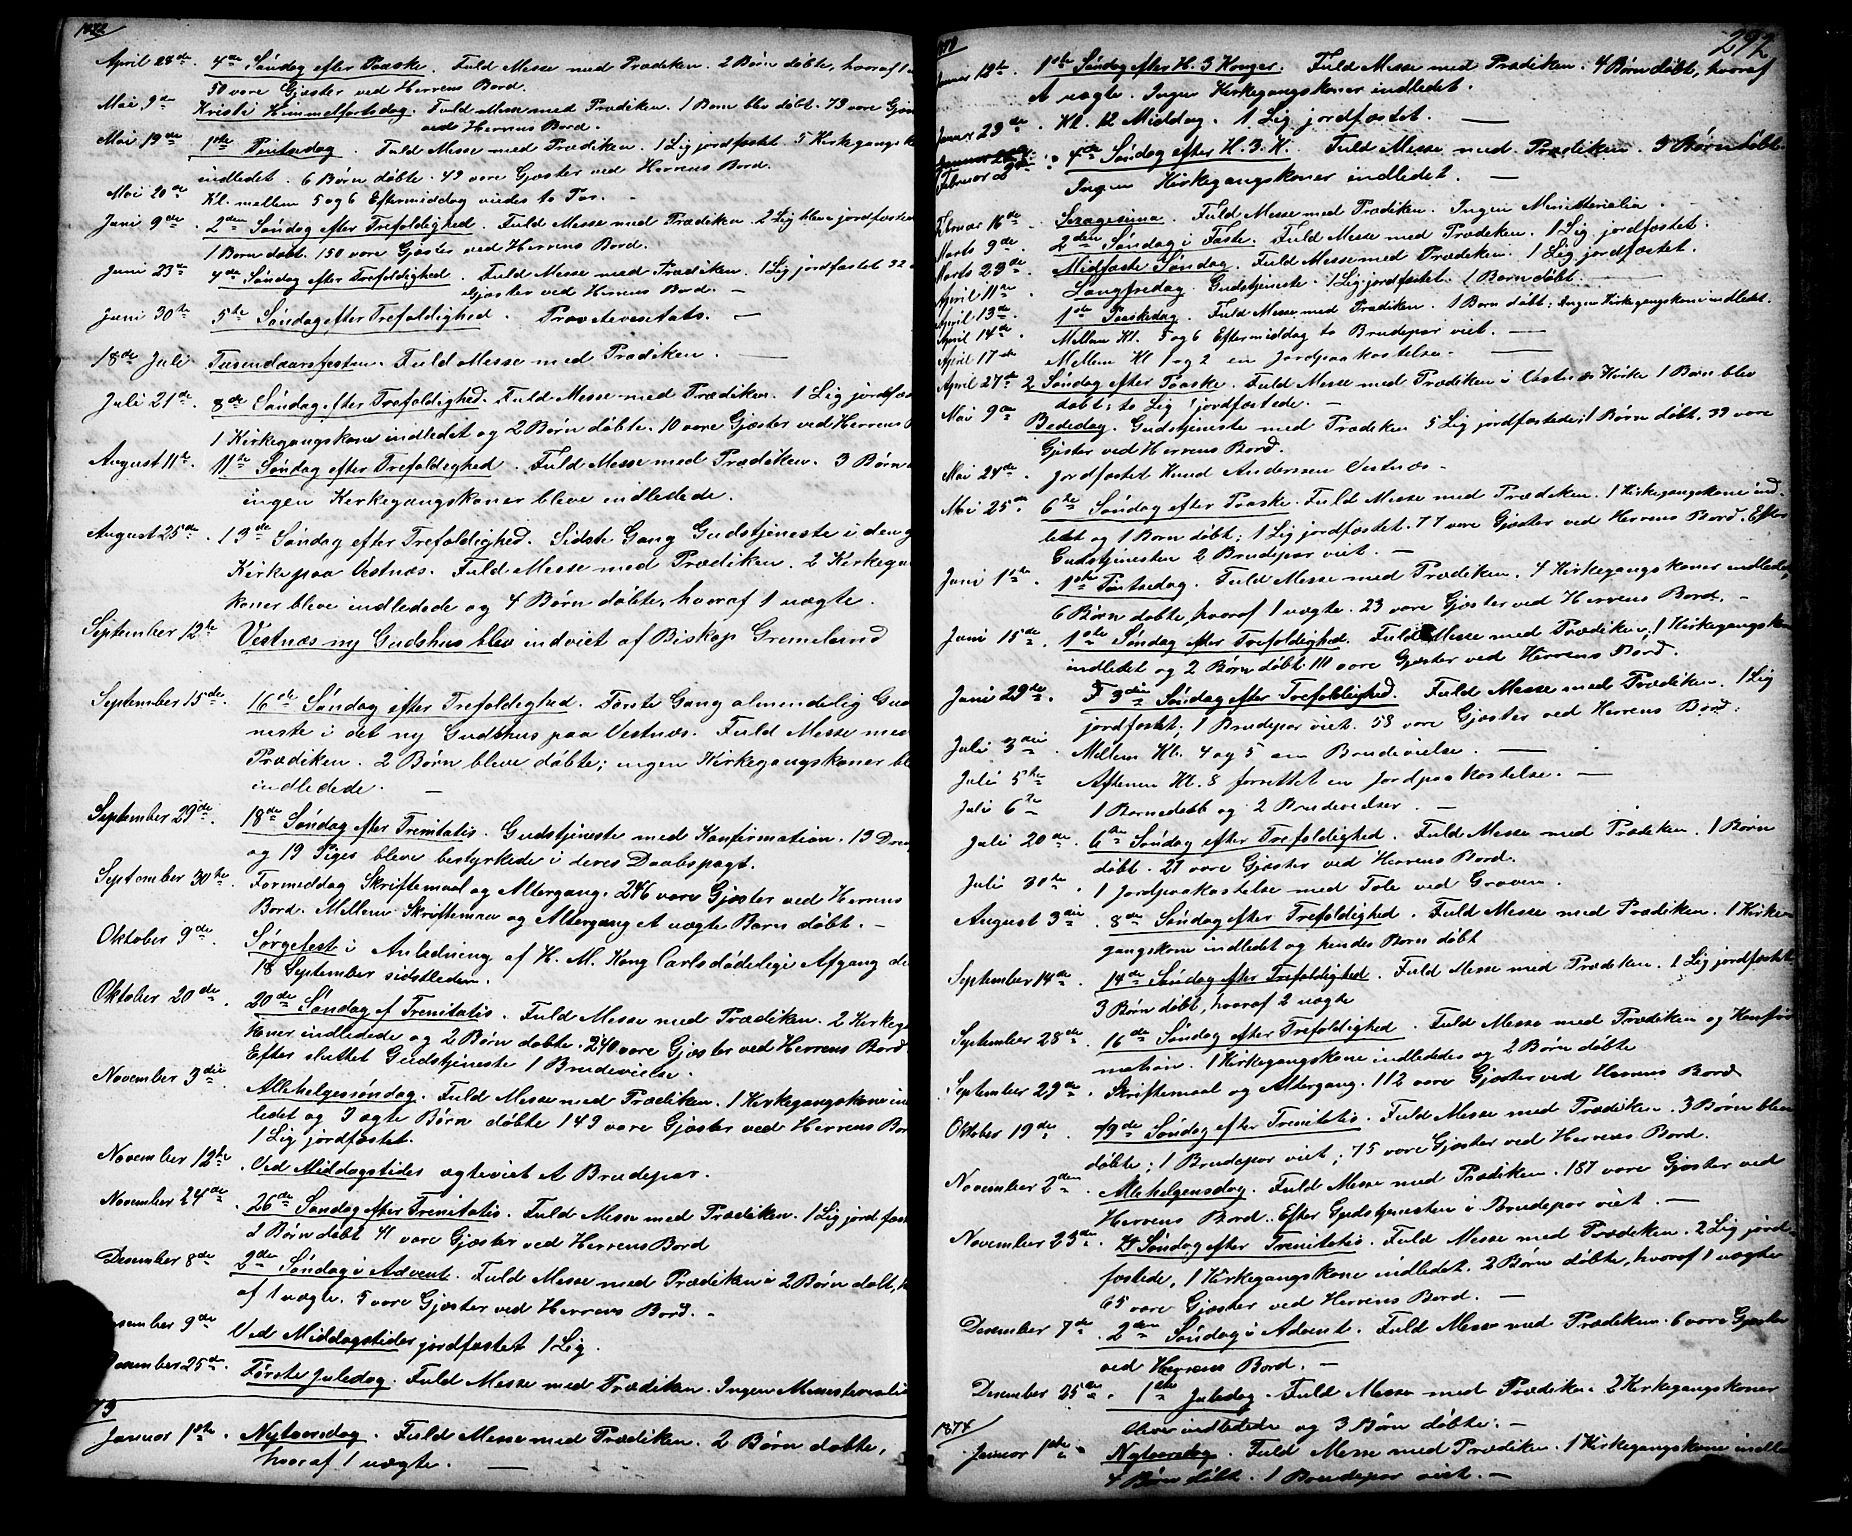 1872
April 28de 4de Søndag efter Paaske. Fuld Messe med Prædiken. 2 Børn døbte, hvoraf 1
50 vore Gjæster ved Herrens Bord.
Mai 9de Kristi Himmelfartsdag. Fuld Messe med Prædiken. 1 Barn blev døbt. 79 vore Gjæs
ved Herrens Bord.
Mai 19de 1ste Pintsedag. Fuld Messe med Prædiken. 1 Lig jordfæstet 5 Kirkegangsk
indledet. 6 Børn døbte. 49 vore Gjæster ved Herrens Bord.
Mai 20de Kl. mellem 5 og 6 Eftermiddag viedes to Par. -
Juni 9de 2den Søndag efter Trefoldighed. Fuld Messe med Prædiken. 2 Lig bleve jordfæstede
1 Barn døbt. 150 vore Gjæster ved Herrens Bord.
Juni 23de 4de Søndag efter Trefoldighed. Fuld Messe med Prædiken. 1 Lig jordfæstet 32
Gjæster ved Herrens Bord. -
Juni 30te 5te Søndag efter Trefoldighed. Provstevisitats. -
18de Juli Tusendaarsfesten. Fuld Messe med Prædiken. -
Juli 21de. 8de Søndag efter Trefoldighed. Fuld Messe med Prædiken. 1 Lig jordfæs
1 Kirkegangskone indledet og 2 Børn døbte. 10 vore Gjæster ved Herrens B
August 11te. 11te Søndag efter Trefoldighed. Fuld Messe med Prædiken. 3 Børn
ingen Kirkegangskoner bleve indledede.
August 25de. 13de Søndag efter Trefoldighed. Sidste Gang Gudstjeneste i den g
Kirke paa Vestnæs. Fuld Messe med Prædiken. 2 Kirkega
koner bleve indledede og 4 Børn døbte, hvoraf 1 uægte.
September 12te Vestnæs ny Gudshus blev indviet af Biskop Grimelund
September 15de. 16de Søndag efter Trefoldighed. Første Gang almindelig Gud
neste i det ny Gudshus paa Vestnæs. Fuld Messe med
Prædiken. 2 Børn bleve døbte; ingen Kirkegangskoner bl
indledede. -
September 29de. 18de Søndag efter Trenitatis. Gudstjeneste med Konfirmation. 13 Dren
og 19 Piges bleve bestyrkede i deres Daabspagt.
September 30te. Formiddag Skriftemaal og Altergang. 246 vore Gjæster ved Herrens
Bord. Mellem Skriftemaa og Altergang et uægte Barn døbt. -
Oktober 9de. Sørgefest i Anledning af H. M. Kong Carls dødelige Afgang de
18 September sidstleden.
Oktober 20de. 20de Søndag ef Trenitatis. Fuld Messe med Prædiken. 2 Kirkeg
koner indledede og 2 Børn døbte. 240 vore Gjæster ved Herrens Bord
Efter sluttet Gudstjeneste 1 Brudevielse.
November 3die. Allehelgessøndag. Fuld Messe med Prædiken. 1 Kirkegangskone in
ledet og 7 ægte Børn døbte 149 vore Gjæster ved Herrens Bor
1 Lig jordfæstet.
November 12te. Ved Middagstider ægteviet et Brudepar.
November 24de. 26de Søndag efter Trenitatis. Fuld Messe med Prædiken. 1 Lig jordfæst
2 Børn døbt 41 vore Gjæster ved Herrens Bord
Desember 8de 2den Søndag i Advent. Fuld Messe med Prædiken; 2 Børn døbt, h
af 1 uægte. 5 vore Gjæster ved Herrens Bord. -
esember 9de Ved Middagstider jordfæstet 1 Lig.
esember 25de. Første Juledag. Fuld Messe med Prædiken. Ingen Menesteriali
73
Januar 1ste. Nytaarsdag. Fuld Messe med Prædiken. 2 Børn døbte,
hvoraf 1 uægte. -
292
Januar 12te. 1ste Søndag efter H. 3 Konger. Fuld Messe med Prædiken. 4 Børn døbt, hvoraf
et uægte. Ingen Kirkegangskoner indledet.
Januar 29de. Kl. 12 Middag. 1 Lig jordfæstet. -
Februar 4de Søndag efter H. 3. K. Fuld Messe med Prædiken. 3 Børn døbt.
Ingen Kirkegangskoner indledet. -
Februar 16de Sexagesima. Fuld Messe med Prædiken. Ingen Menisterialia. -
Marts 9de. 2den Søndag i Faste. Fuld Messe med Prædiken. 1 Lig jordfæstet.
Marts 23de. Midfaste Søndag. Fuld Messe med Prædiken. 1 Lig jordfæstet.
April 11te. Langfredag. Gudstjeneste. 1 Lig jordfæstet. 1 Barn døbt. -
April 13de. 1ste Paaskedag. Fuld Messe med Prædiken. 1 Barn døbt. Ingen Kirkegangskone indledet.
April 14de Mellem Kl. 5 og 6 Eftermiddag to Brudepar viet. -
April 17de Mellem Kl 1 og 2 en Jordpaakastelse. -
April 27de 2 Søndag efter Paaske. Fuld Messe med Prædiken i Vestnæs Kirke 1 Børn blev
døbt; to Lig jordfæstede. -
Mai 9de Bededag. Gudstjeneste med Prædiken 5 Lig jordfæstede; 1 Børn døbt. 39 vore
Gjæster ved Herrens Bord.
Mai 24de. Jordfæstet Knud Andersen Vestnæs -
Mai 25de 6te Søndag efter Paaske. Fuld Messe med Prædiken. 1 Kirkegangskone ind-
ledet og 1 Børn døbt; 1 Lig jordfæstet. 77 vore Gjæster ved Herrens Bord. Efter
Gudstjenesten 2 Brudepar viet. -
Juni 1ste. 1ste Pintsedag. Fuld Messe med Prædiken. 4 Kirkegangskoner indlede,
6 Børn døbte, hvoraf 1 uægte. 23 vore Gjæster ved Herrens Bord. -
Juni 15de. 1ste Søndag efter Trefoldighed. Fuld Messe med Prædiken; 1 Kirkegangskone
indledet og 2 Børn døbt. 111 vore Gjæster ved Herrens Bord.
Juni 29de. 3die Søndag efter Trefoldighed. Fuld Messe med Prædiken. 1 Lig
jordfæstet; 1 Brudepar viet. 58 vore Gjæster ved Herrens Bord.
Juli 3die. Mellem Kl. 4 og 5 en Brudevielse. -
Juli 5te Aftenen Kl. 8 forrettet en Jordpaakastelse. -
Juli 6te 1 Barnedåb og 2 Brudevielser. -
Juli 20de. 6te Søndag efter Trefoldighed. Fuld Messe med Prædiken. 1 Børn
døbt. 21 vore Gjæster ved Herrens Bord.
Juli 30te. 1 Jordpaakastelse med Tale ved Graven.
August 3die. 8de Søndag efter Trefoldighed. Fuld Messe med Prædiken. 1 Kirke-
gangskone indledet og hendes Barn døbt
September 14de. 14de Søndag efter Trefoldighed. Fuld Messe med Prædiken. 1 Lig jordfæstet
3 Børn døbt, hvoraf 2 uægte
September 28de. 16de Søndag efter Trefoldighed. Fuld Messe med Prædiken og Konfir
mation. 1 Kirkegangskone indledes og 2 Børn døbte
September 29de. Skriftemaal og Altergang. 112 vore Gjæster ved Herrens Bord
Oktober 19de. 19de Søndag efter Trenitatis. Fuld Messe med Prædiken. 3 Børn bleve
døbte; 1 Brudepar viet; 75 vore Gjæster ved Herrens Bord.
November 2den. Allehelgensdag. Fuld Messe med Prædiken. 187 vore Gjæster ved
Herrens Bord. Efter Gudstjenesten 1 Brudepar viet. -
November 23de. 24 Søndag efter Trenitatis. Fuld Messe med Prædiken. 2 Lig jord-
fæstede, 1 Kirkegangskone indledet. 2 Børn døbte, hvoraf 1 uægte
65 vore Gjæster ved Herrens Bord. -
Desember 7de. 2den Søndag i Advent. Fuld Messe med Prædiken. 6 vore Gjæster
ved Herrens Bord. -
Desember 25de. 1ste Juledag. Fuld Messe med Prædiken. 2 Kirkegangskoner
bleve indledede og 3 Børn døbte. -
1874
Januar 1ste. Nytaarsdag. Fuld Messe med Prædiken. 1 Kirkegangskone indle
4 Børn døbt. 1 Brudepar viet. -